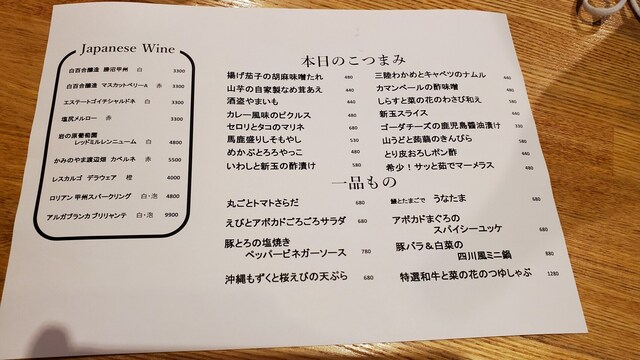 Japanese Wine
白百合醸造 勝沼甲州 白 3300
白百合醸造 マスカットベリーA 赤 3300
エステートゴイチシャルドネ 白 3300
塩尻メルロー 赤 3300
岩の原葡萄園
レッドミルレンニューム 白 4800
かみのやま渡辺畑 カベルネ 赤 5500
レスカルゴ デラウェア 橙 4000
ロリアン 甲州スパークリング 白・泡 4800
アルガブランカ ブリリャンテ 白・泡 9900
本日のこつまみ
揚げ茄子の胡麻味噌たれ 480
山芋の自家製なめ茸あえ 440
酒盗やまいも 440
カレー風味のピクルス 480
セロリとタコのマリネ 680
馬鹿盛りしそもやし 530
めかぶとろろやっこ 480
いわしと新玉の酢漬け 580
三陸わかめとキャベツのナムル 440
カマンベールの酢味噌 480
しらすと菜の花のわさび和え 580
新玉スライス 440
ゴーダチーズの鹿児島醤油漬け 330
山うどと蒟蒻のきんぴら 580
とり皮おろしポン酢 440
希少!サッと茹でマーメラス 480
一品もの
丸ごとトマトさらだ 680
えびとアボカドごろごろサラダ 680
豚とろの塩焼き
ペッパービネガーソース 780
沖縄もずくと桜えびの天ぷら 680
鰻とたまごで うなたま 680
アボカドまぐろの
スパイシーユッケ 680
豚バラ&白菜の
四川風ミニ鍋 880
特選和牛と菜の花のつゆしゃぶ 1280